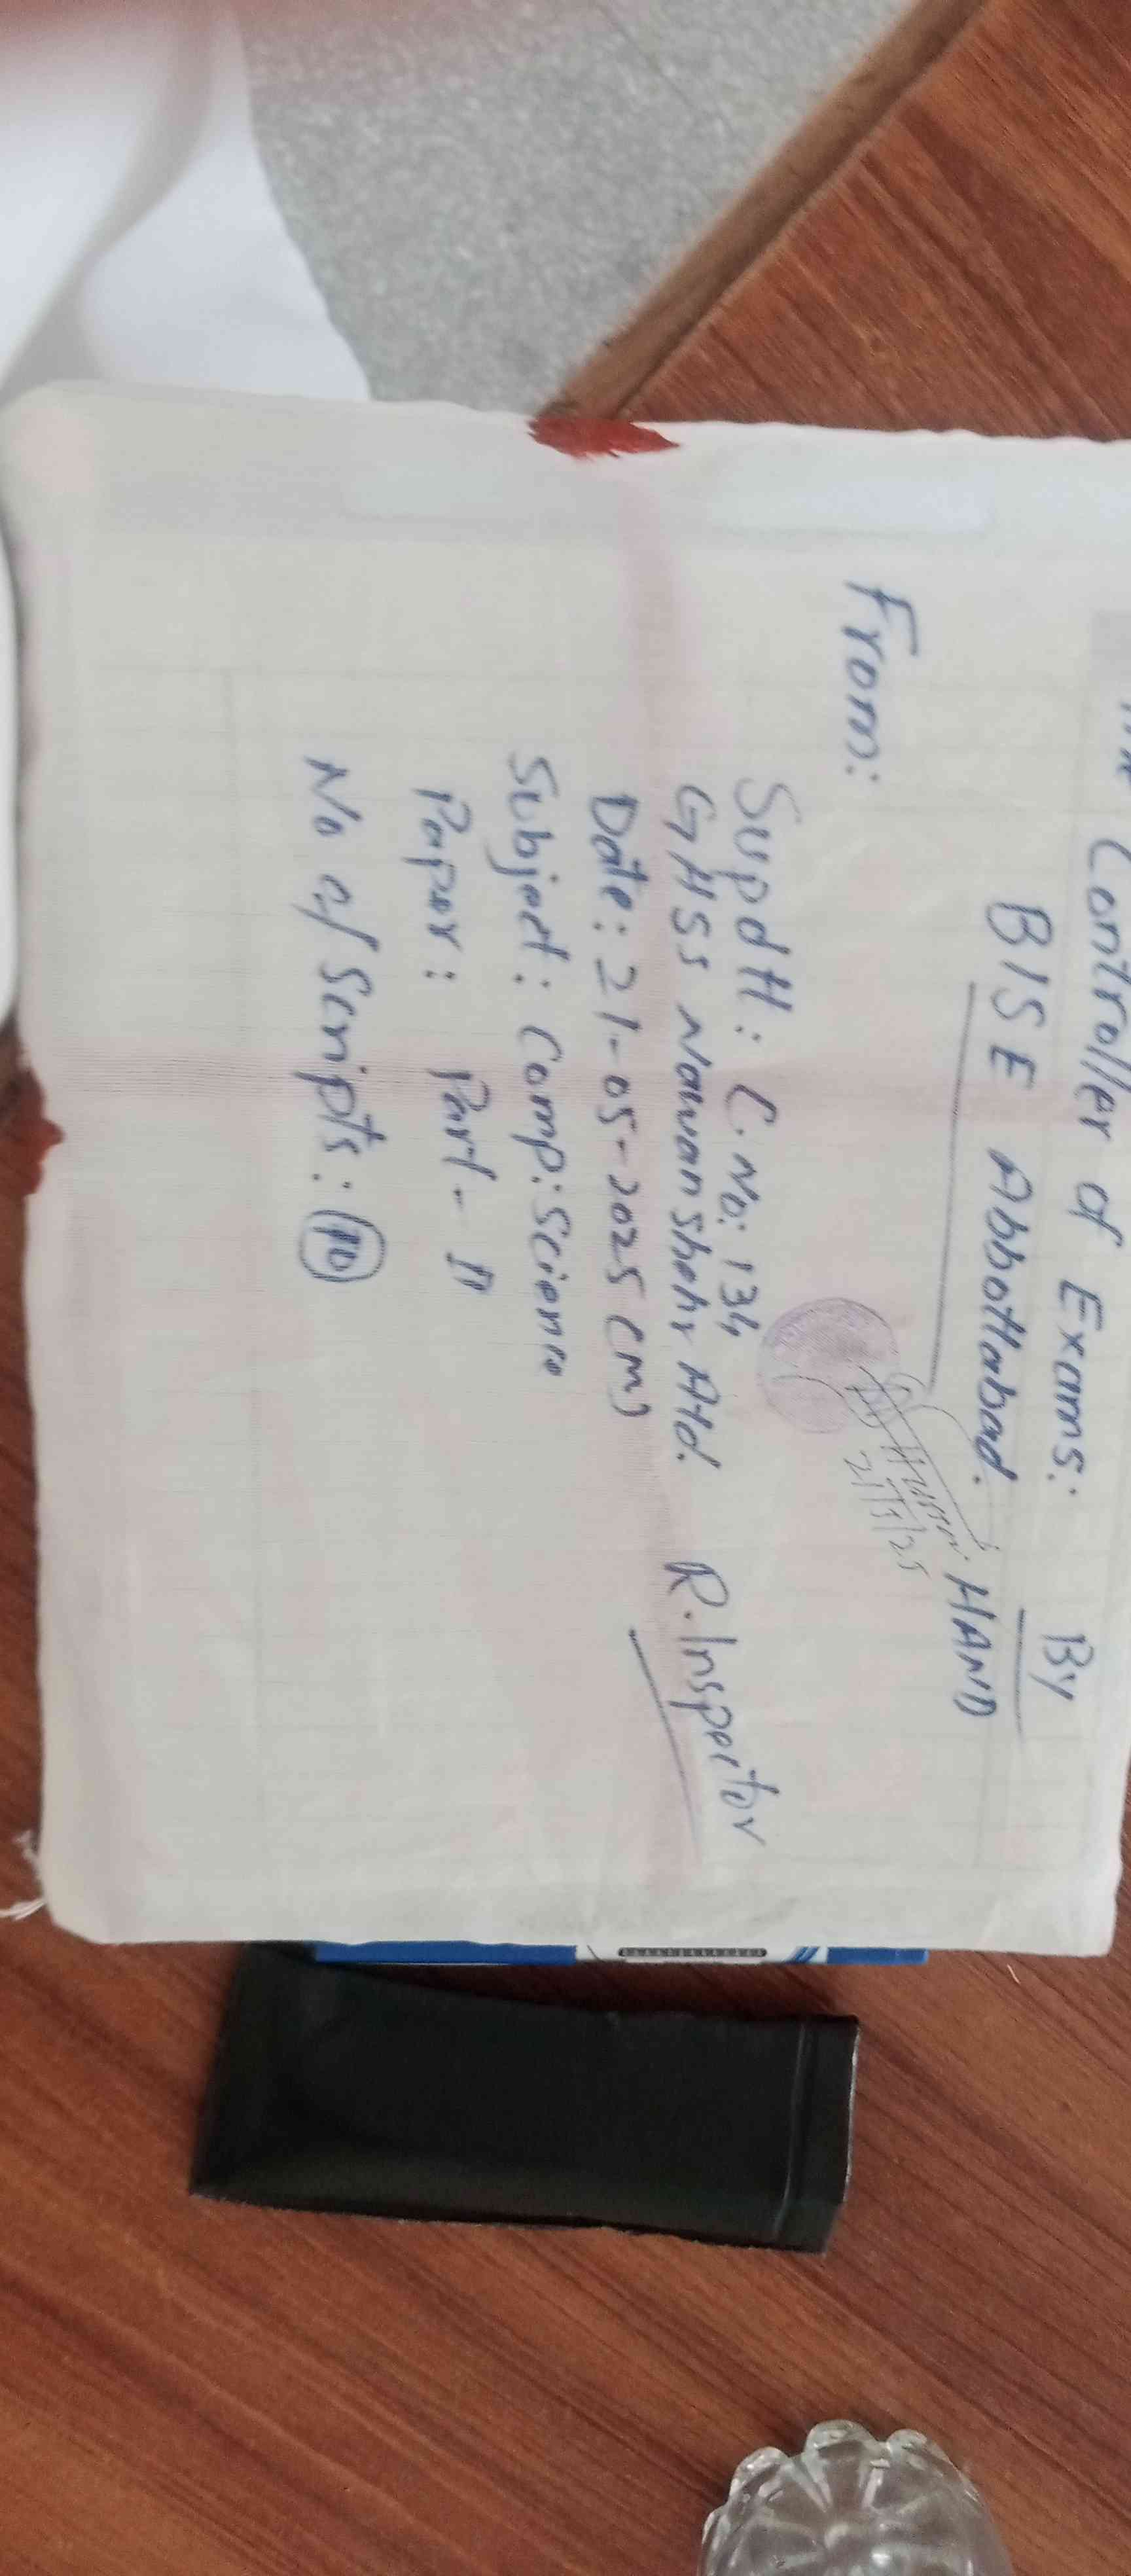 The Controller of Exams:
BISE Abbottabad.
By
HAND
21/5/25
From:
Supdtt: C.No: 134
GHSS Nawanshehr Atd.
R. Inspector
Date: 21-05-2025 (M)
Subject: Comp: Science
Paper: Part-II
No of Scripts: 10